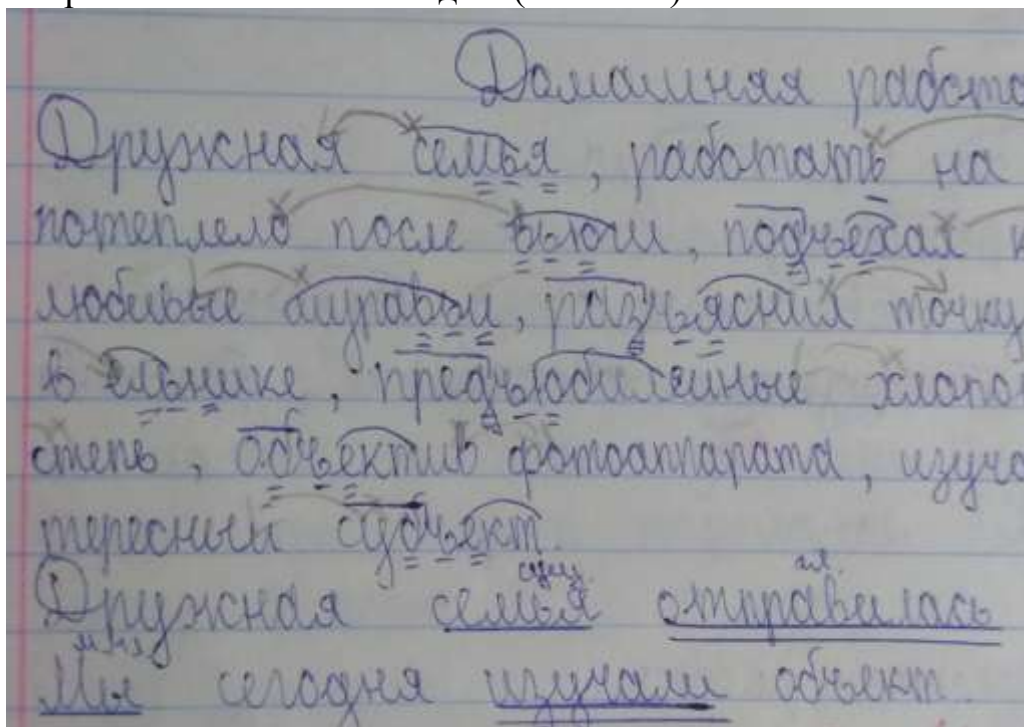 Домашняя работа
Дружная семья, работать на
потеплело после вьюги, подъехал к
любимые муравьи, разъяснил точку
в ельнике, предъюбилейные хлопо
степь, объектив фотоаппарата, изуча
тересный субъект.
сущ. гл.
Дружная семья отправилась
мн.
Мы сегодня изучали объект.